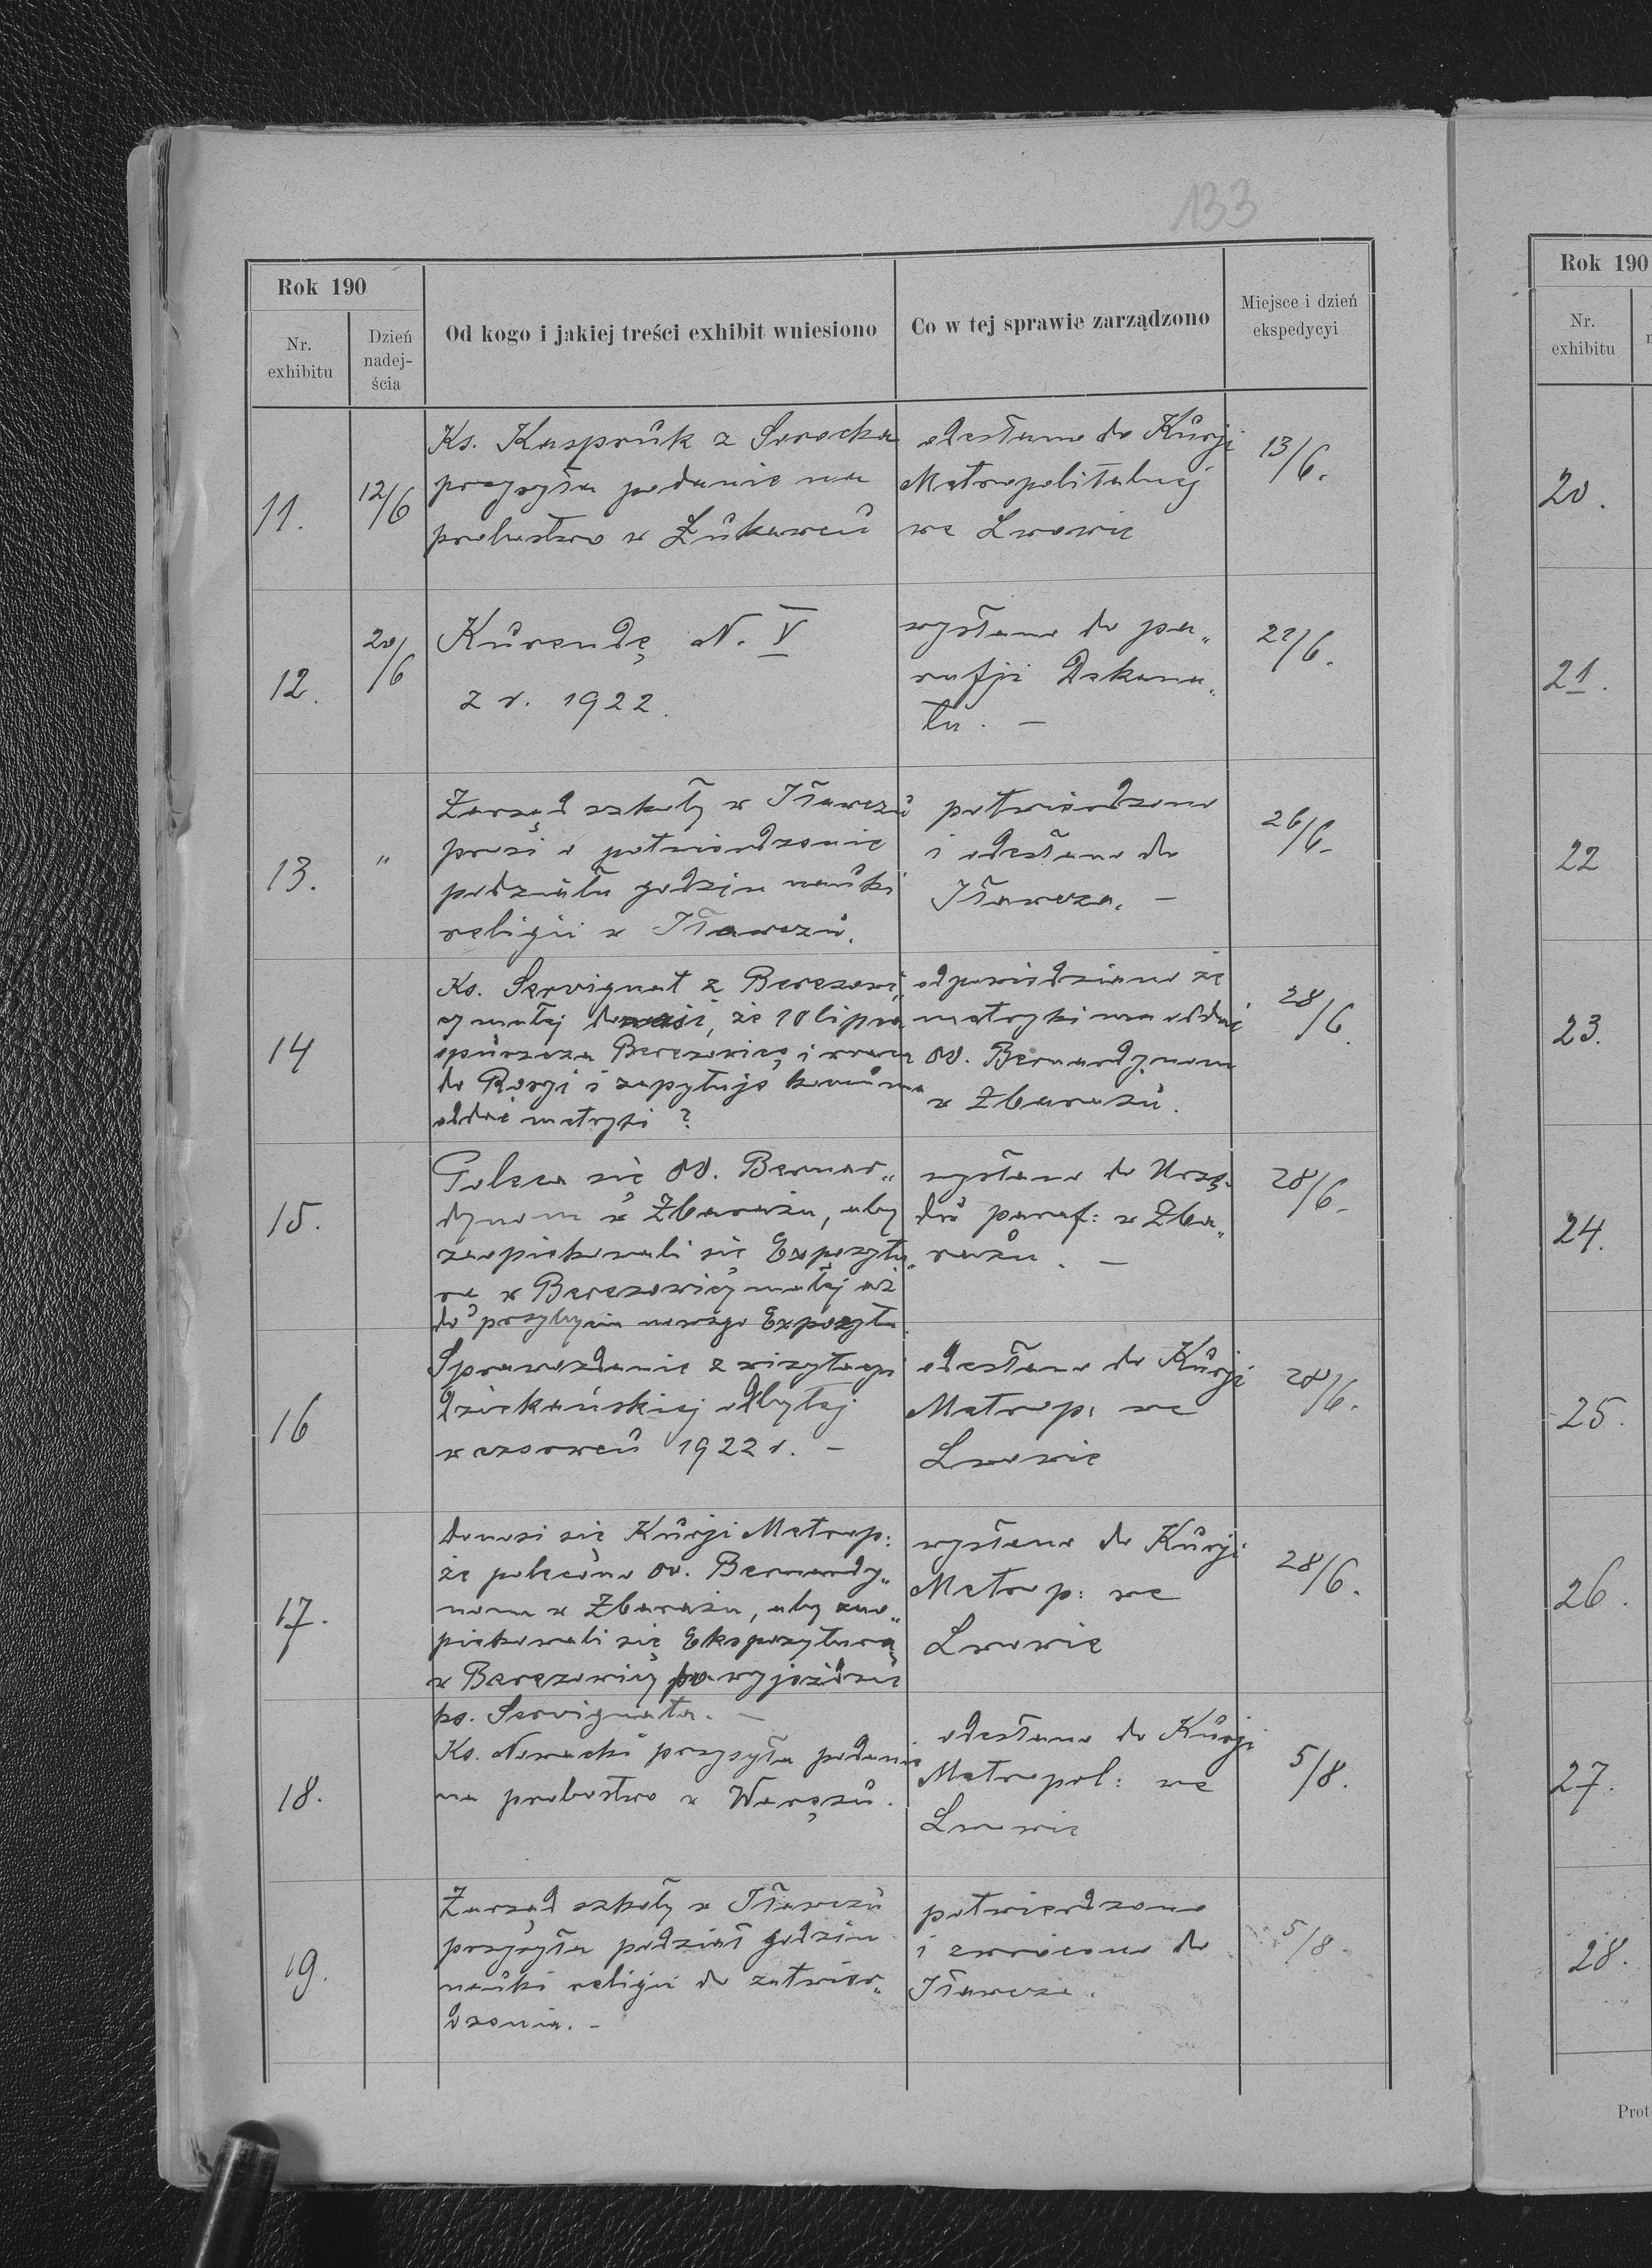 133
Rok 190
Nr. exhibitu
Dzień nadejścia
Od kogo i jakiej treści exhibit wniesiono
Co w tej sprawie zarządzono
Miejsce i dzień ekspedycyi
11.
12/6
Ks. Kasprůk z Sorocka
przysyła podanie na
probostwo w Łůkawců
odesłano do Kůrji
Metropolitalnej
we Lwowie
13/6.
12.
20/6
Kůrendę N. V
z r. 1922.
wysłano do pa„
rafji Dekana„
tů. —
22/6.
13.
"
Zarząd szkoły w Iławczů
prosi o potwierdzenie
podziału godzin naůki
religii w Iławczů.
potwierdzono
i odesłano do
Iławcza. —
26/6.
14
Ks. Servignat z Berezowi„
cy małej donosi, że 10 lipca
opůszcza Berezowicę i wraca
do Rosyi i zapytuje komů ma
oddać metryki?
odpowiedziano że
metryki ma oddać
OO. Bernardynom
w Zbarażů.
28/6.
15.
Poleca się OO. Bernar„
dynom w Zbarażu, aby
zaopiekowali się Expozytu„
rą w Berezowicy małej aż
do przybycia nowego Expozyta.
wysłano do Urzę„
dů paraf: w Zba„
rażu. —
28/6.
16
Sprawozdanie z wizytacyi
dziekańskiej odbytej
w czerwců 1922 r. —
odesłano do Kůrji
Metrop: we
Lwowie
28/6.
17.
donosi się Kůrji Metrop:
że polecono OO. Bernardy„
nom w Zbarażu, aby zao„
piekowali się Ekspozyturą
w Berezowicy po wyjeździe
ks. Servignata. —
wysłano do Kůrji
Metrop: we
Lwowie
28/6.
18.
Ks. Nowacki przysyła podanie
na probostwo w Waręžů.
odesłano do Kůrji
Metropol: we
Lwowie
5/8.
19.
Zarząd szkoły w Iławczů
przysyła podział godzin
naůki religii do zatwier„
dzenia. —
potwierdzono
i zwrócono do
Iławcza.
5/8.
Rok 190
Nr. exhibitu
20.
21.
22
23.
24.
25.
26.
27.
28.
Prot